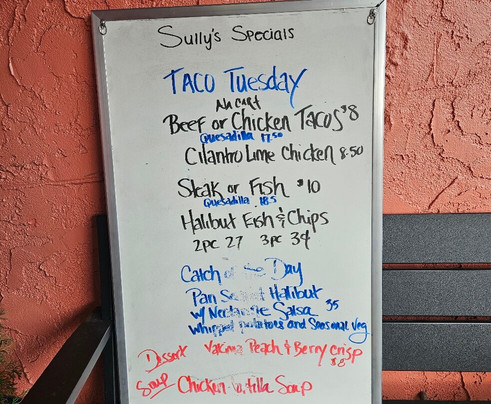 Sully's Specials
TACO TUESDAY
Ala CART
BEEF or Chicken TACOS $8
Quesadilla 17.50
Cilantro Lime Chicken 8.50
Steak or Fish $10
Quesadilla 18.5
Halibut Fish & Chips
2pc 27 3pc 34
Catch of the Day
Pan Halibut
w/ Nectarine Salsa 35
whipped potatoes and Seasonal Veg
Dessert Yakima Peach & Berry Crisp
$8
Soup Chicken Tortilla Soup